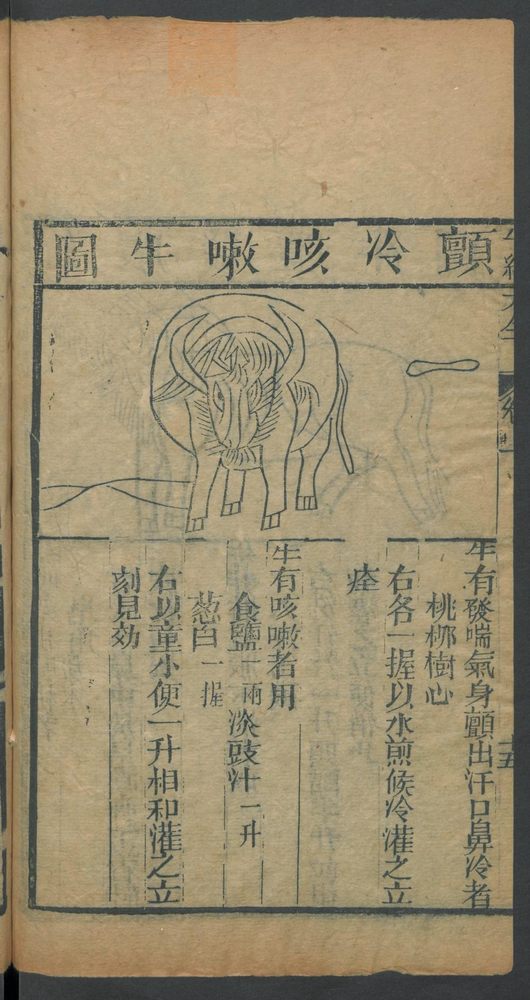 顫冷咳嗽牛圖
牛有發喘氣身顫出汗口鼻冷者
桃柳樹心
右各一握以水煎候冷灌之立
痊
牛有咳嗽者用
食鹽一兩淡豉汁一升
葱白一握
右以童小便一升相和灌之立
刻見効
十五